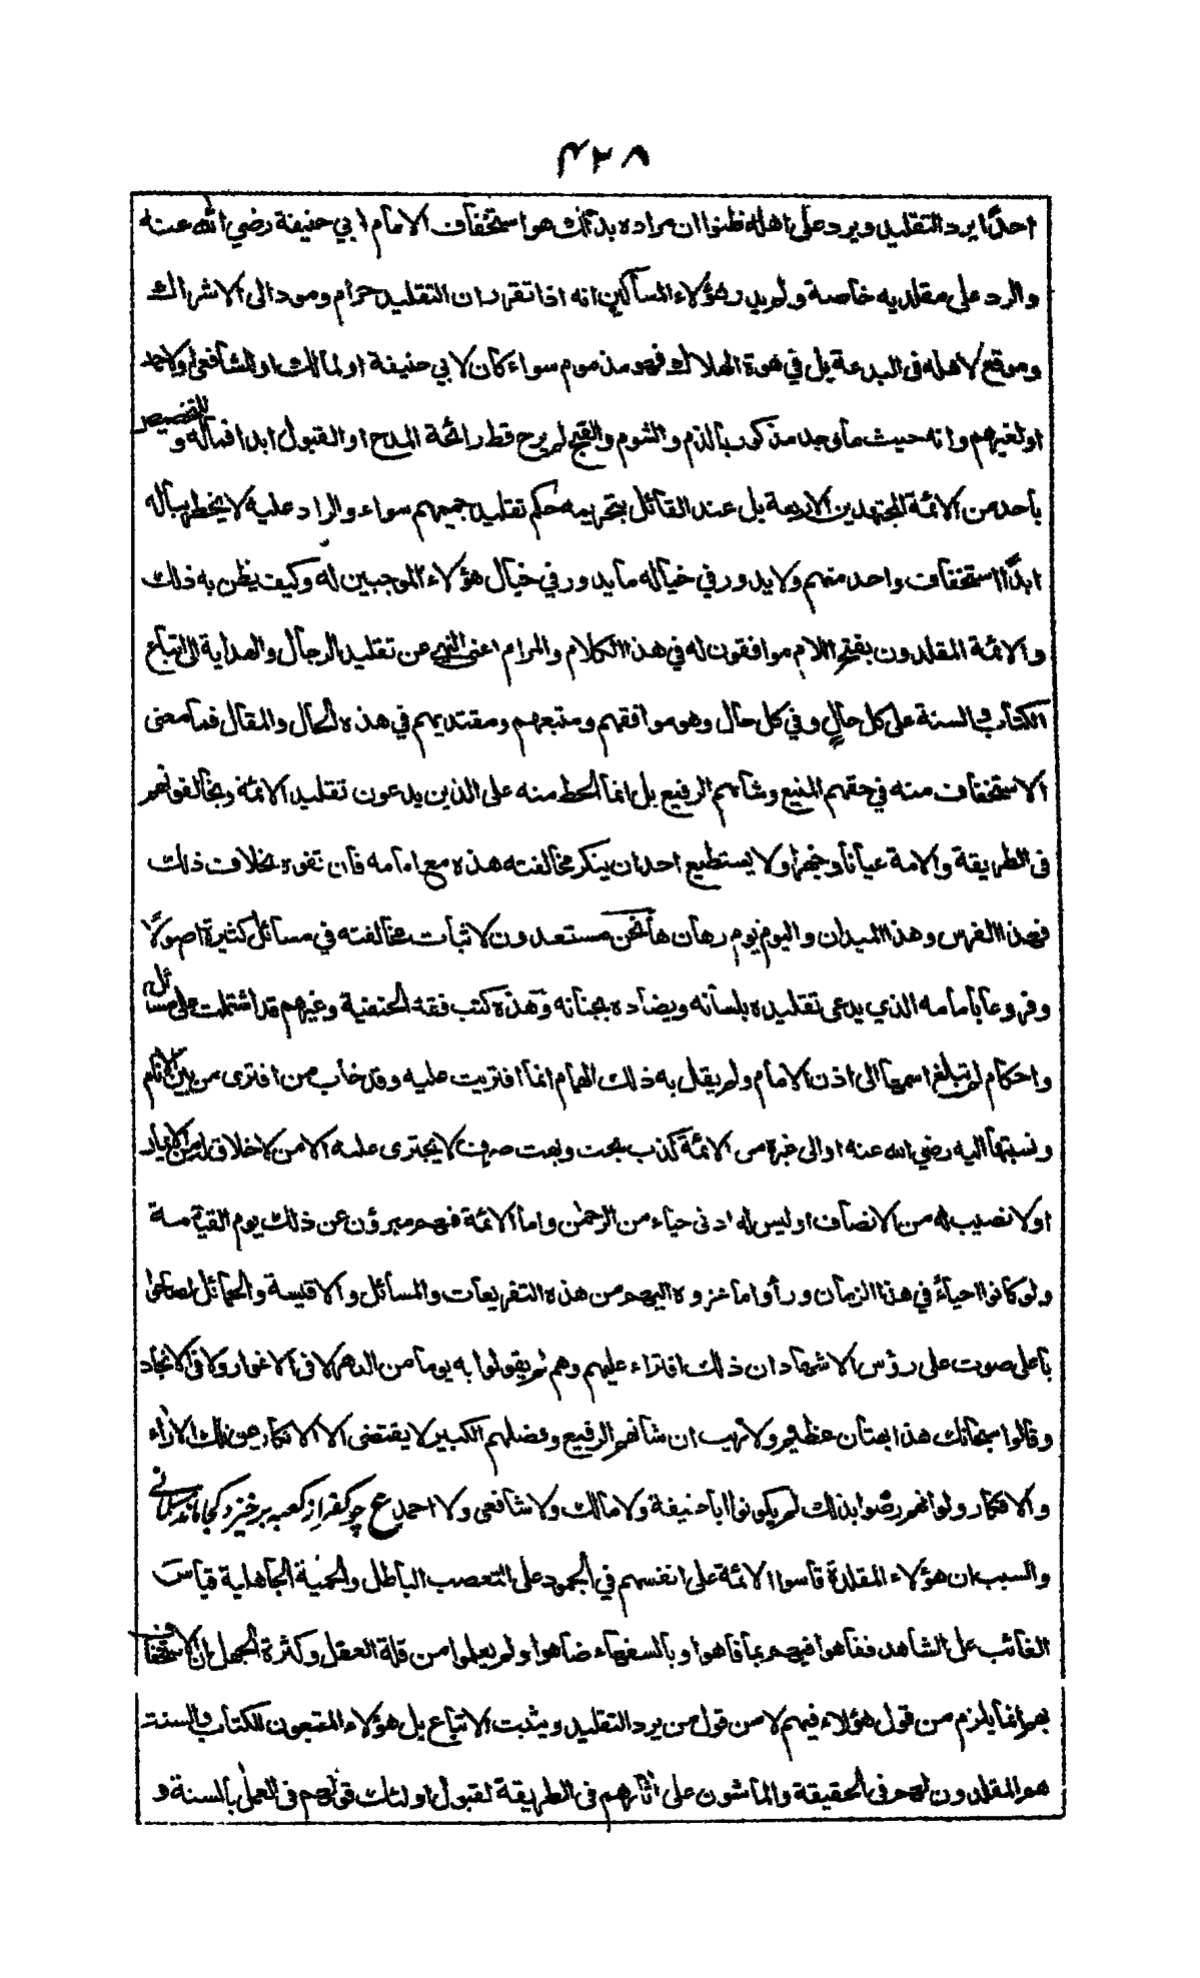 ٤٢٨
احدًا يرد التقليد ويرد على اهله ظنوا ان مراده بذلك هو استخفاف الامام ابي حنيفة رضي الله عنه
والرد على مقلديه خاصة ولم يدر هؤلاء المساكين انه اذا تقرر ان التقليد حرام ومود الى الاشراك
وموقع لاهله فى البدعة بل في هوة الهلاك فهو مذموم سواء كان لابي حنيفة او لمالك او للشافعي او لاحمد
او لغيرهم وانه حيث ما وجد مذكور بالذم والشوم والقبح لم يرح قط رائحة المدح او القبول ابدا فماله وللتخصيص
باحد من الائمة المجتهدين الاربعة بل عند القائل بتحريمه حكم تقليد جميعهم سواء والراد عليه لا يخطر بباله
ابدًا استخفاف واحد منهم ولا يدور في خياله ما يدور في خيال هؤلاء الموجبين له وكيف يظن به ذلك
والائمة المقلدون بفتح اللام موافقون له في هذا الكلام والمرام اعنى النهي عن تقليد الرجال والهداية الى اتباع
الكتاب والسنة على كل حالٍ وفي كل حال وهو موافقهم ومتبعهم ومقتديهم في هذه الحال والمقال فما معنى
الاستخفاف منه في حقهم المنيع وشانهم الرفيع بل انما الحط منه على الذين يدعون تقليد الائمة ويخالفونهم
فى الطريقة والامة عيانا وجهرا ولا يستطيع احد ان ينكر مخالفته هذه مع امامه فان تفوه بخلاف ذلك
فهذا الفرس وهذا الميدان واليوم يوم رهان ها نحن مستعدون لاثبات مخالفته في مسائل كثيرة اصولًا
وفروعا بامامه الذي يدعى تقليده بلسانه ويضاده بجنانه وهذه كتب فقه الحنفية وغيرهم قد اشتملت على مسائل
واحكام لم تبلغ اسمها الى اذن الامام ولم يقل به ذلك الهمام انما افتريت عليه وقد خاب من افترى من بين الانام
ونسبتها اليه رضي الله عنه او الى غيره من الائمة كذب بحت وبهت صرف لا يجترى عليه الا من لا خلاق له من الايمان
او لا نصيب له من الانصاف او ليس له ادنى حياء من الرحمن واما الائمة فهم مبرؤن عن ذلك يوم القيامة
ولو كانوا احياءً في هذا الزمان ورأوا ما عزوه اليهم من هذه التفريعات والمسائل والاقيسة والحمائل لصاحوا
باعلى صوت على رؤس الاشهاد ان ذلك افتراء عليهم وهم لم يقولوا به يوما من الدهر لا فى الاغوار ولا فى الانجاد
وقالوا سبحانك هذا بهتان عظيم ولا ريب ان شانهم الرفيع وفضلهم الكبير لا يقتضى الا الانكار عن تلك الاراء
والافكار ولو انهم رضوا بذلك لم يكونوا ابا حنيفة ولا مالك ولا شافعى ولا احمد ع چو كفر از كعبه بر خيزد كجا ماند مسلمانى
والسبب ان هؤلاء المقلدة قاسوا الائمة على انفسهم في الجمود على التعصب الباطل والحمية الجاهلية قياس
الغائب على الشاهد ففاهوا فيهم بما فاهوا وبالسفهاء ضاهوا ولم يعلموا من قلة العقل وكثرة الجهل ان الاستخفاف
بهم انما يلزم من قول هؤلاء فيهم لا من قول من يرد التقليد ويثبت الاتباع بل هؤلاء المتبعون للكتاب والسنة
هم المقلدون لهم فى الحقيقة والماشون على اثارهم فى الطريقة لقبول اولئك قولهم فى العمل بالسنة و